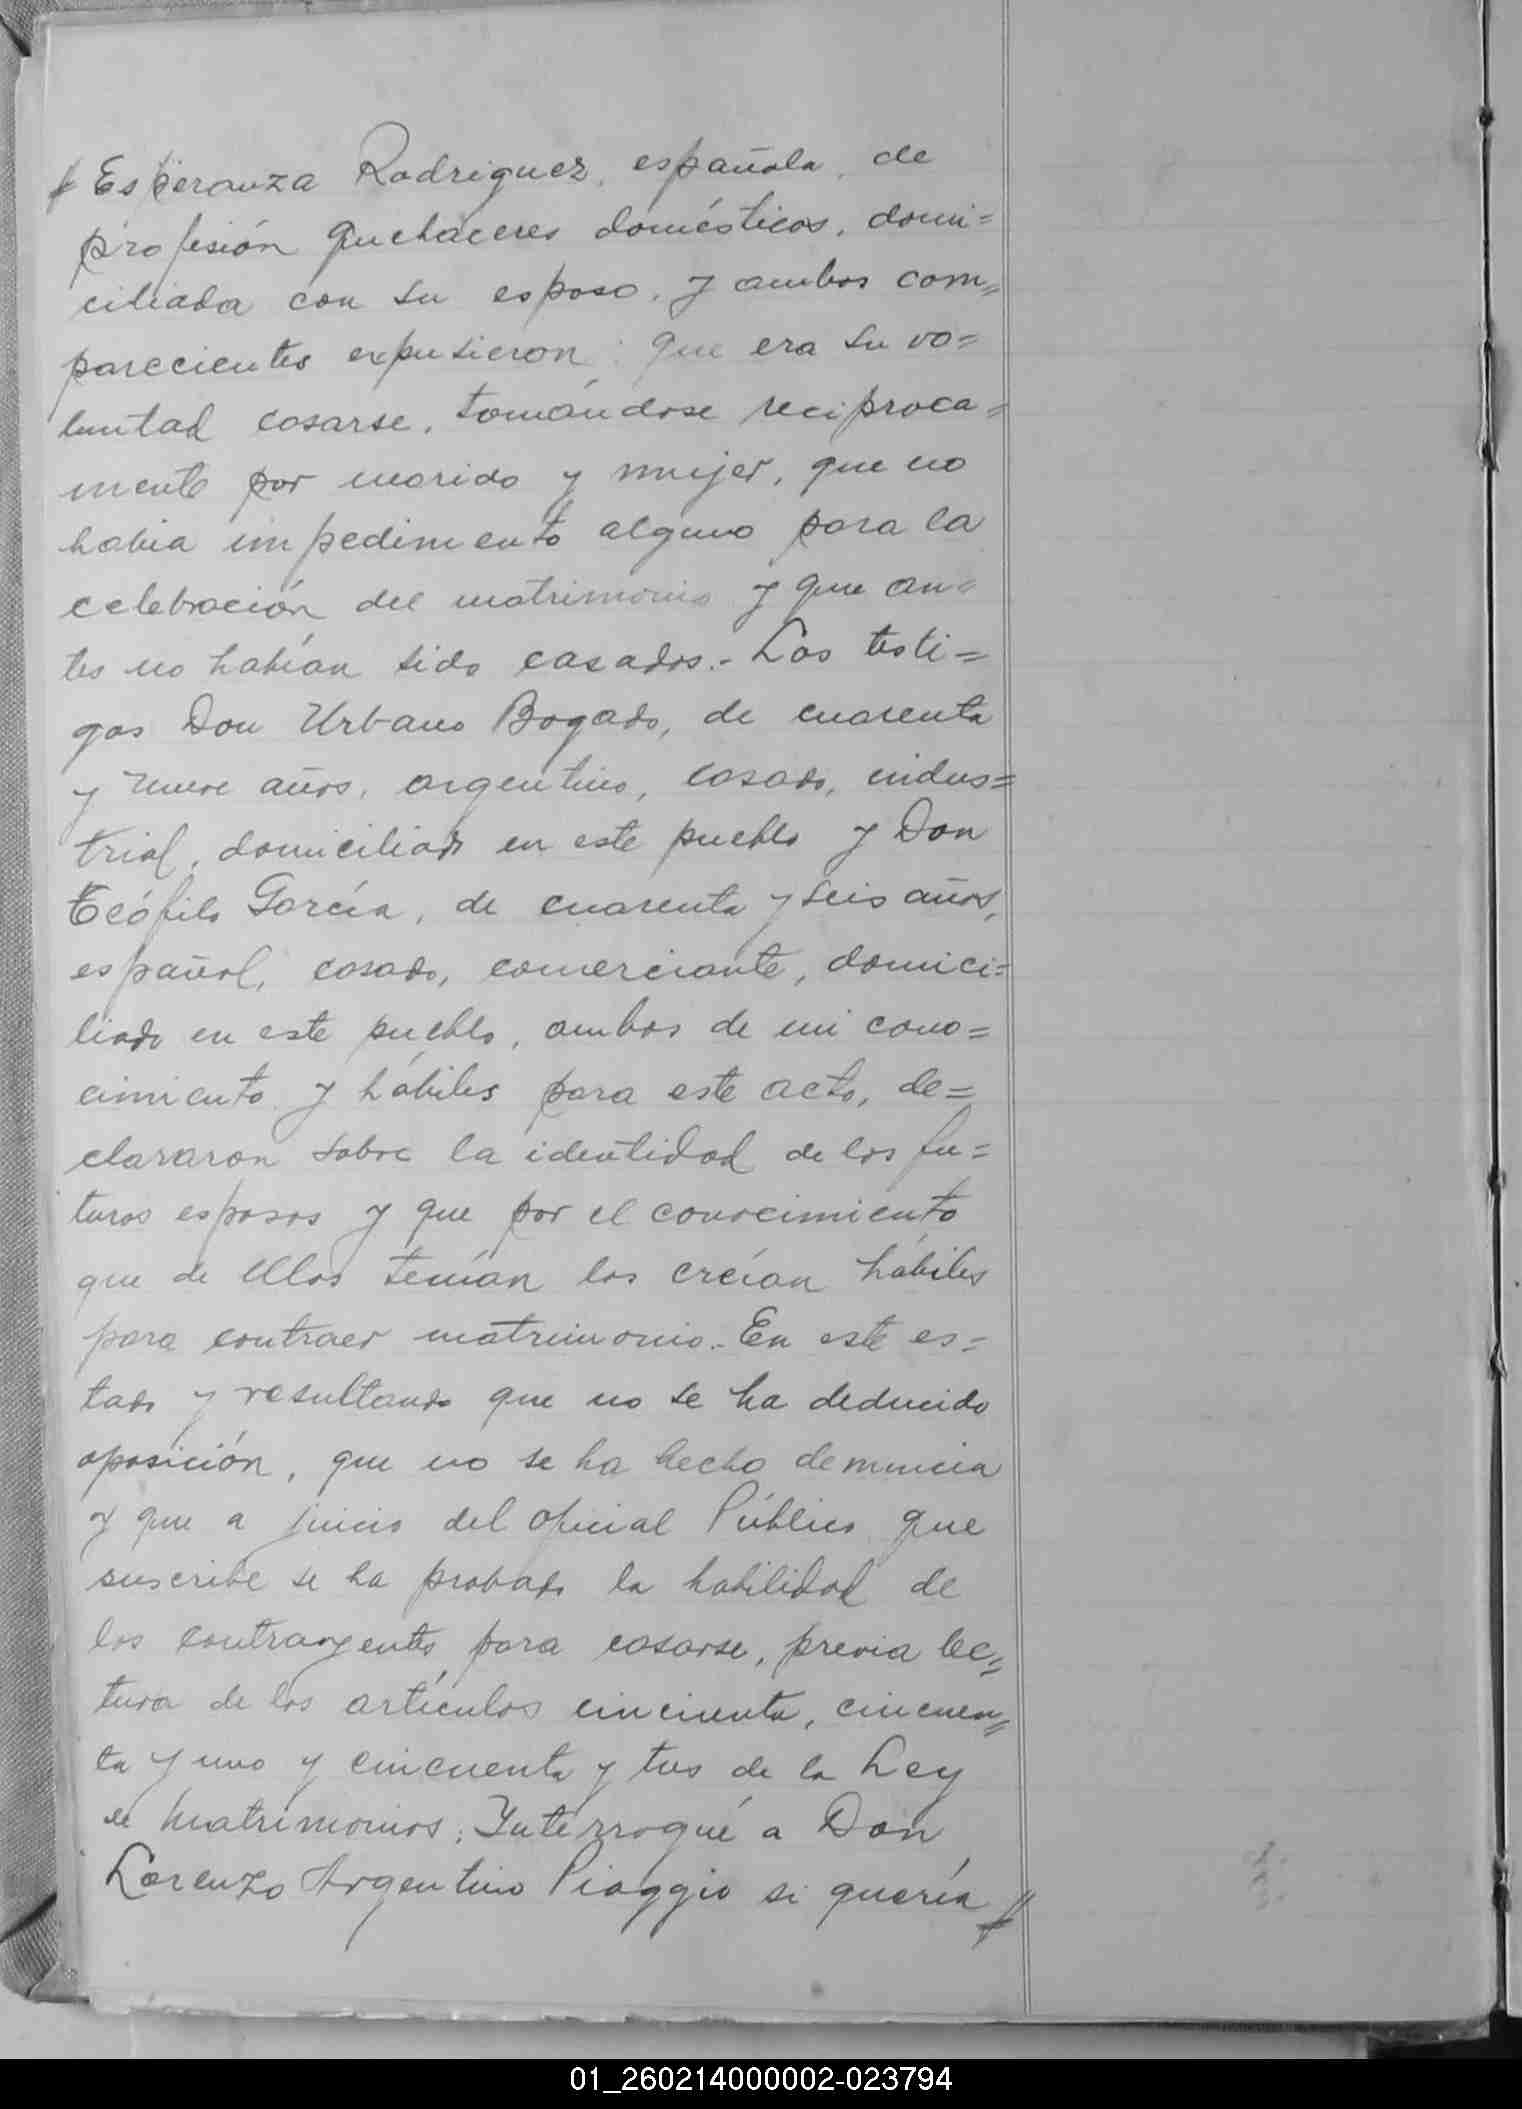 # Esperanza Rodriguez, española, de
profesión quehaceres domésticos, domi=
ciliada con su esposo, y ambos com=
parecientes expusieron: que era su vo=
luntad casarse, tomándose reciproca=
mente por marido y mujer, que no
habia impedimento alguno para la
celebración del matrimonio y que an=
tes no habían sido casados.- Los testi=
gos Don Urbano Bogado, de cuarenta
y nueve años, argentino, casado, indus=
trial, domiciliado en este pueblo y Don
Teófilo García, de cuarenta y seis años,
español, casado, comerciante, domici=
liado en este pueblo, ambos de mi cono=
cimiento y hábiles para este acto, de=
clararon sobre la identidad de los fu=
turos esposos y que por el conocimiento
que de ellos tenían los creían hábiles
para contraer matrimonio.- En este es=
tado y resultando que no se ha deducido
oposición, que no se ha hecho denuncia
y que a juicio del oficial Público que
suscribe se ha probado la habilidad de
los contrayentes para casarse, previa lec=
tura de los artículos cincuenta, cincuen=
ta y uno y cincuenta y tres de la Ley
de Matrimonios; Interrogué a Don
Lorenzo Argentino Piaggio si quería #
01_260214000002-023794